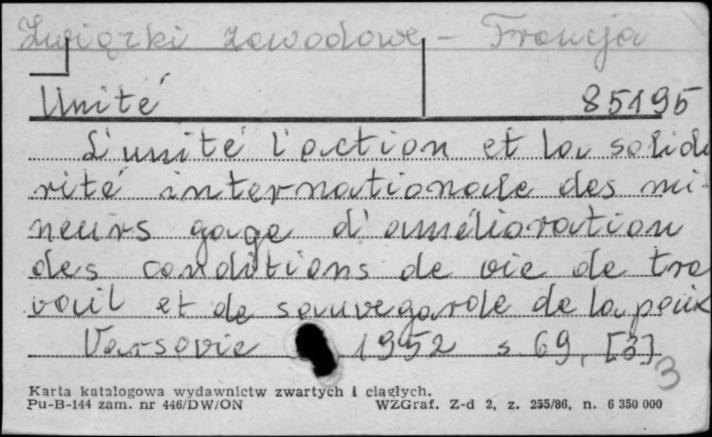 Związki zawodowe - Francja
Unité 85195
L'unité l'action et la solida
rité internationale des mi-
neurs gage d'amélioration
des conditions de vie de tra
vail et de sauvegarde de la paix
Varsovie 1952 s 69, [3]
3
Karta katalogowa wydawnictw zwartych i ciągłych.
Pu-B-144 zam. nr 446/DW/ON WZGraf. Z-d 2, z. 255/86, n. 6 350 000